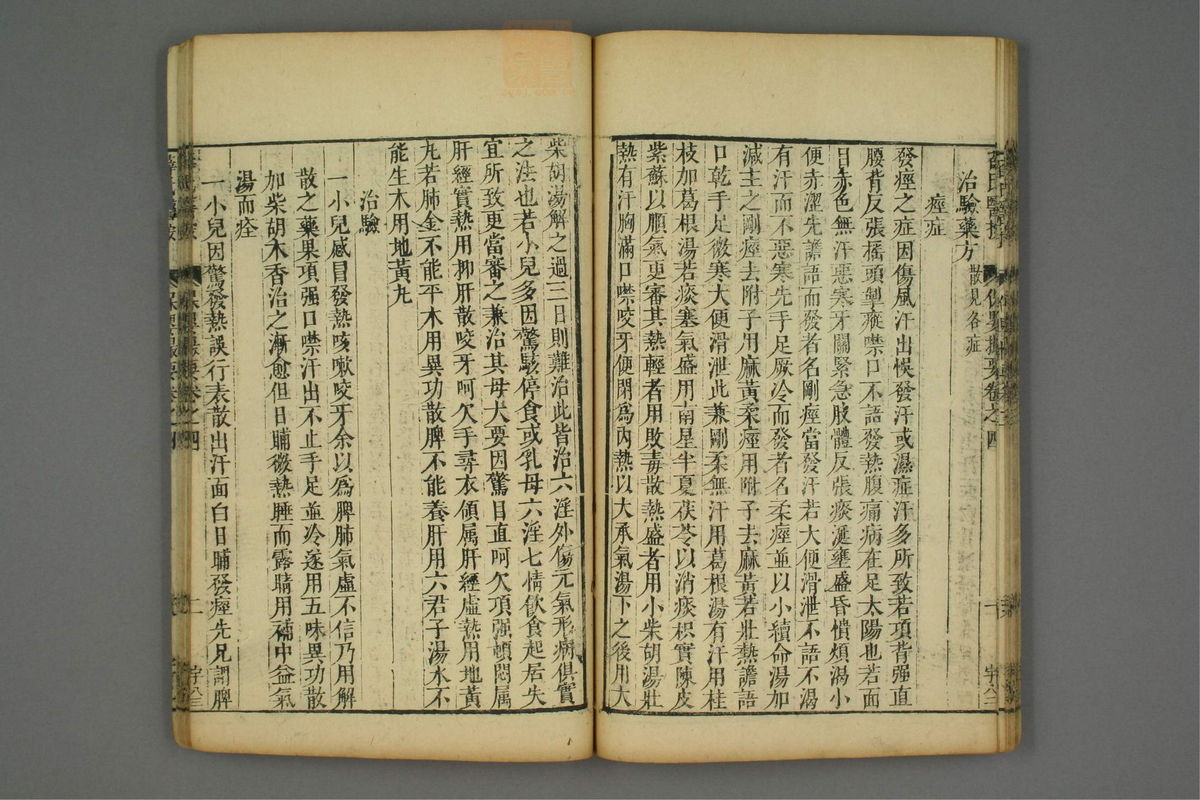 治驗藥方 散見各症
痙症
發痙之症因傷風汗出悞發汗或濕症汗多所致若項背强直
腰背反張搖頭掣瘲噤口不語發熱腹痛病在足太陽也若面
目赤色無汗惡寒牙關緊急肢體反張痰涎壅盛昏憒煩渴小
便赤澀先譫語而發者名剛痙當發汗若大便滑泄不語不渴
有汗而不惡寒先手足厥冷而發者名柔痙並以小續命湯加
減主之剛痙去附子用麻黃柔痙用附子去麻黃若壯熱譫語
口乾手足微寒大便滑泄此兼剛柔無汗用葛根湯有汗用桂
枝加葛根湯若痰塞氣盛用南星半夏茯苓以消痰枳實陳皮
紫蘇以順氣更審其熱輕者用敗毒散熱盛者用小柴胡湯壯
熱有汗胸滿口噤咬牙便閉爲內熱以大承氣湯下之後用大
柴胡湯解之過三日則難治此皆治六淫外傷元氣形病俱實
之法也若小兒多因驚駭停食或乳母六淫七情飲食起居失
宜所致更當審之兼治其母大要因驚目直呵欠項强頓悶属
肝經實熱用抑肝散咬牙呵欠手尋衣領属肝經虛熱用地黃
丸若肺金不能平木用異功散脾不能養肝用六君子湯水不
能生木用地黃丸
治驗
一小兒感冒發熱咳嗽咬牙余以爲脾肺氣虛不信乃用解
散之藥果項强口噤汗出不止手足並冷遂用五味異功散
加柴胡木香治之漸愈但日晡微熱睡而露睛用補中益氣
湯而痊
一小兒因驚發熱誤行表散出汗面白日晡發痙先兄謂脾